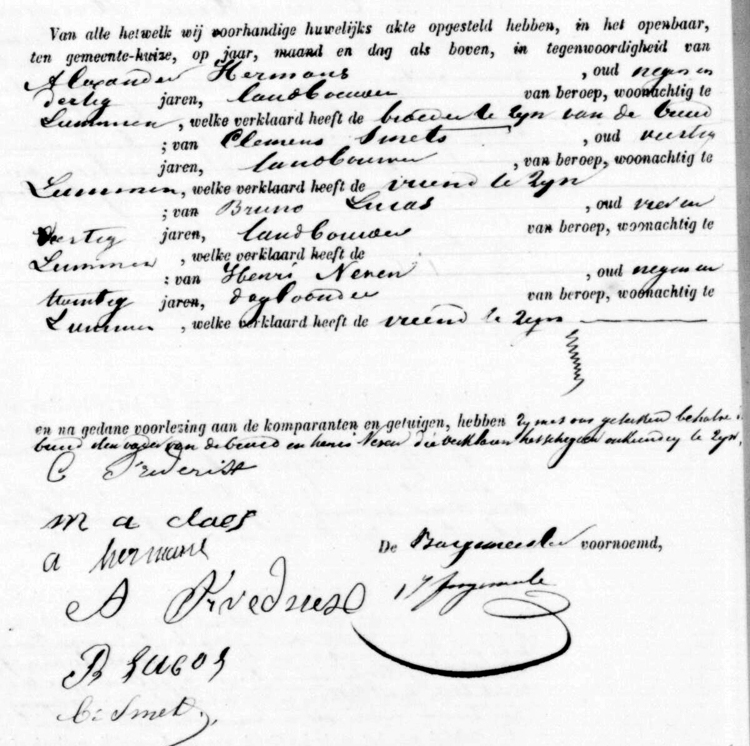 Van alle hetwelk wij voorhandige huwelijks akte opgesteld hebben, in het openbaar,
ten gemeente-huize, op jaar, maand en dag als boven, in tegenwoordigheid van
Alexander Hermans , oud negen en
dertig jaren, landbouwer van beroep, woonachtig te
Lummen , welke verklaard heeft de broeder te zyn van de bruid
; van Clemens Smets , oud veertig
jaren, landbouwer , van beroep, woonachtig te
Lummen, welke verklaard heeft de vriend te zyn
; van Bruno Lucas , oud vier en
veertig jaren, landbouwer van beroep, woonachtig te
Lummen , welke verklaard heeft de
; van Henri Neven , oud negen en
twintig jaren, dagloonder van beroep, woonachtig te
Lummen , welke verklaard heeft de vriend te zyn
en na gedane voorlezing aan de komparanten en getuigen, hebben zy met ons getekend behalve
bruid den vader van de bruid en henri Neven die verklaren het schryven onkundig te zyn.
C Frederix
m a claes
a hermans
De Burgemeester voornoemd,
A
B Lucas
C. Smets